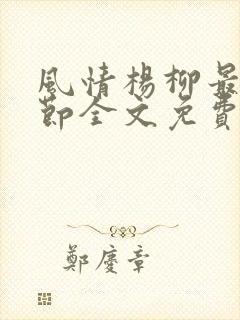 風情楊柳最
節全文免費
鄭慶章